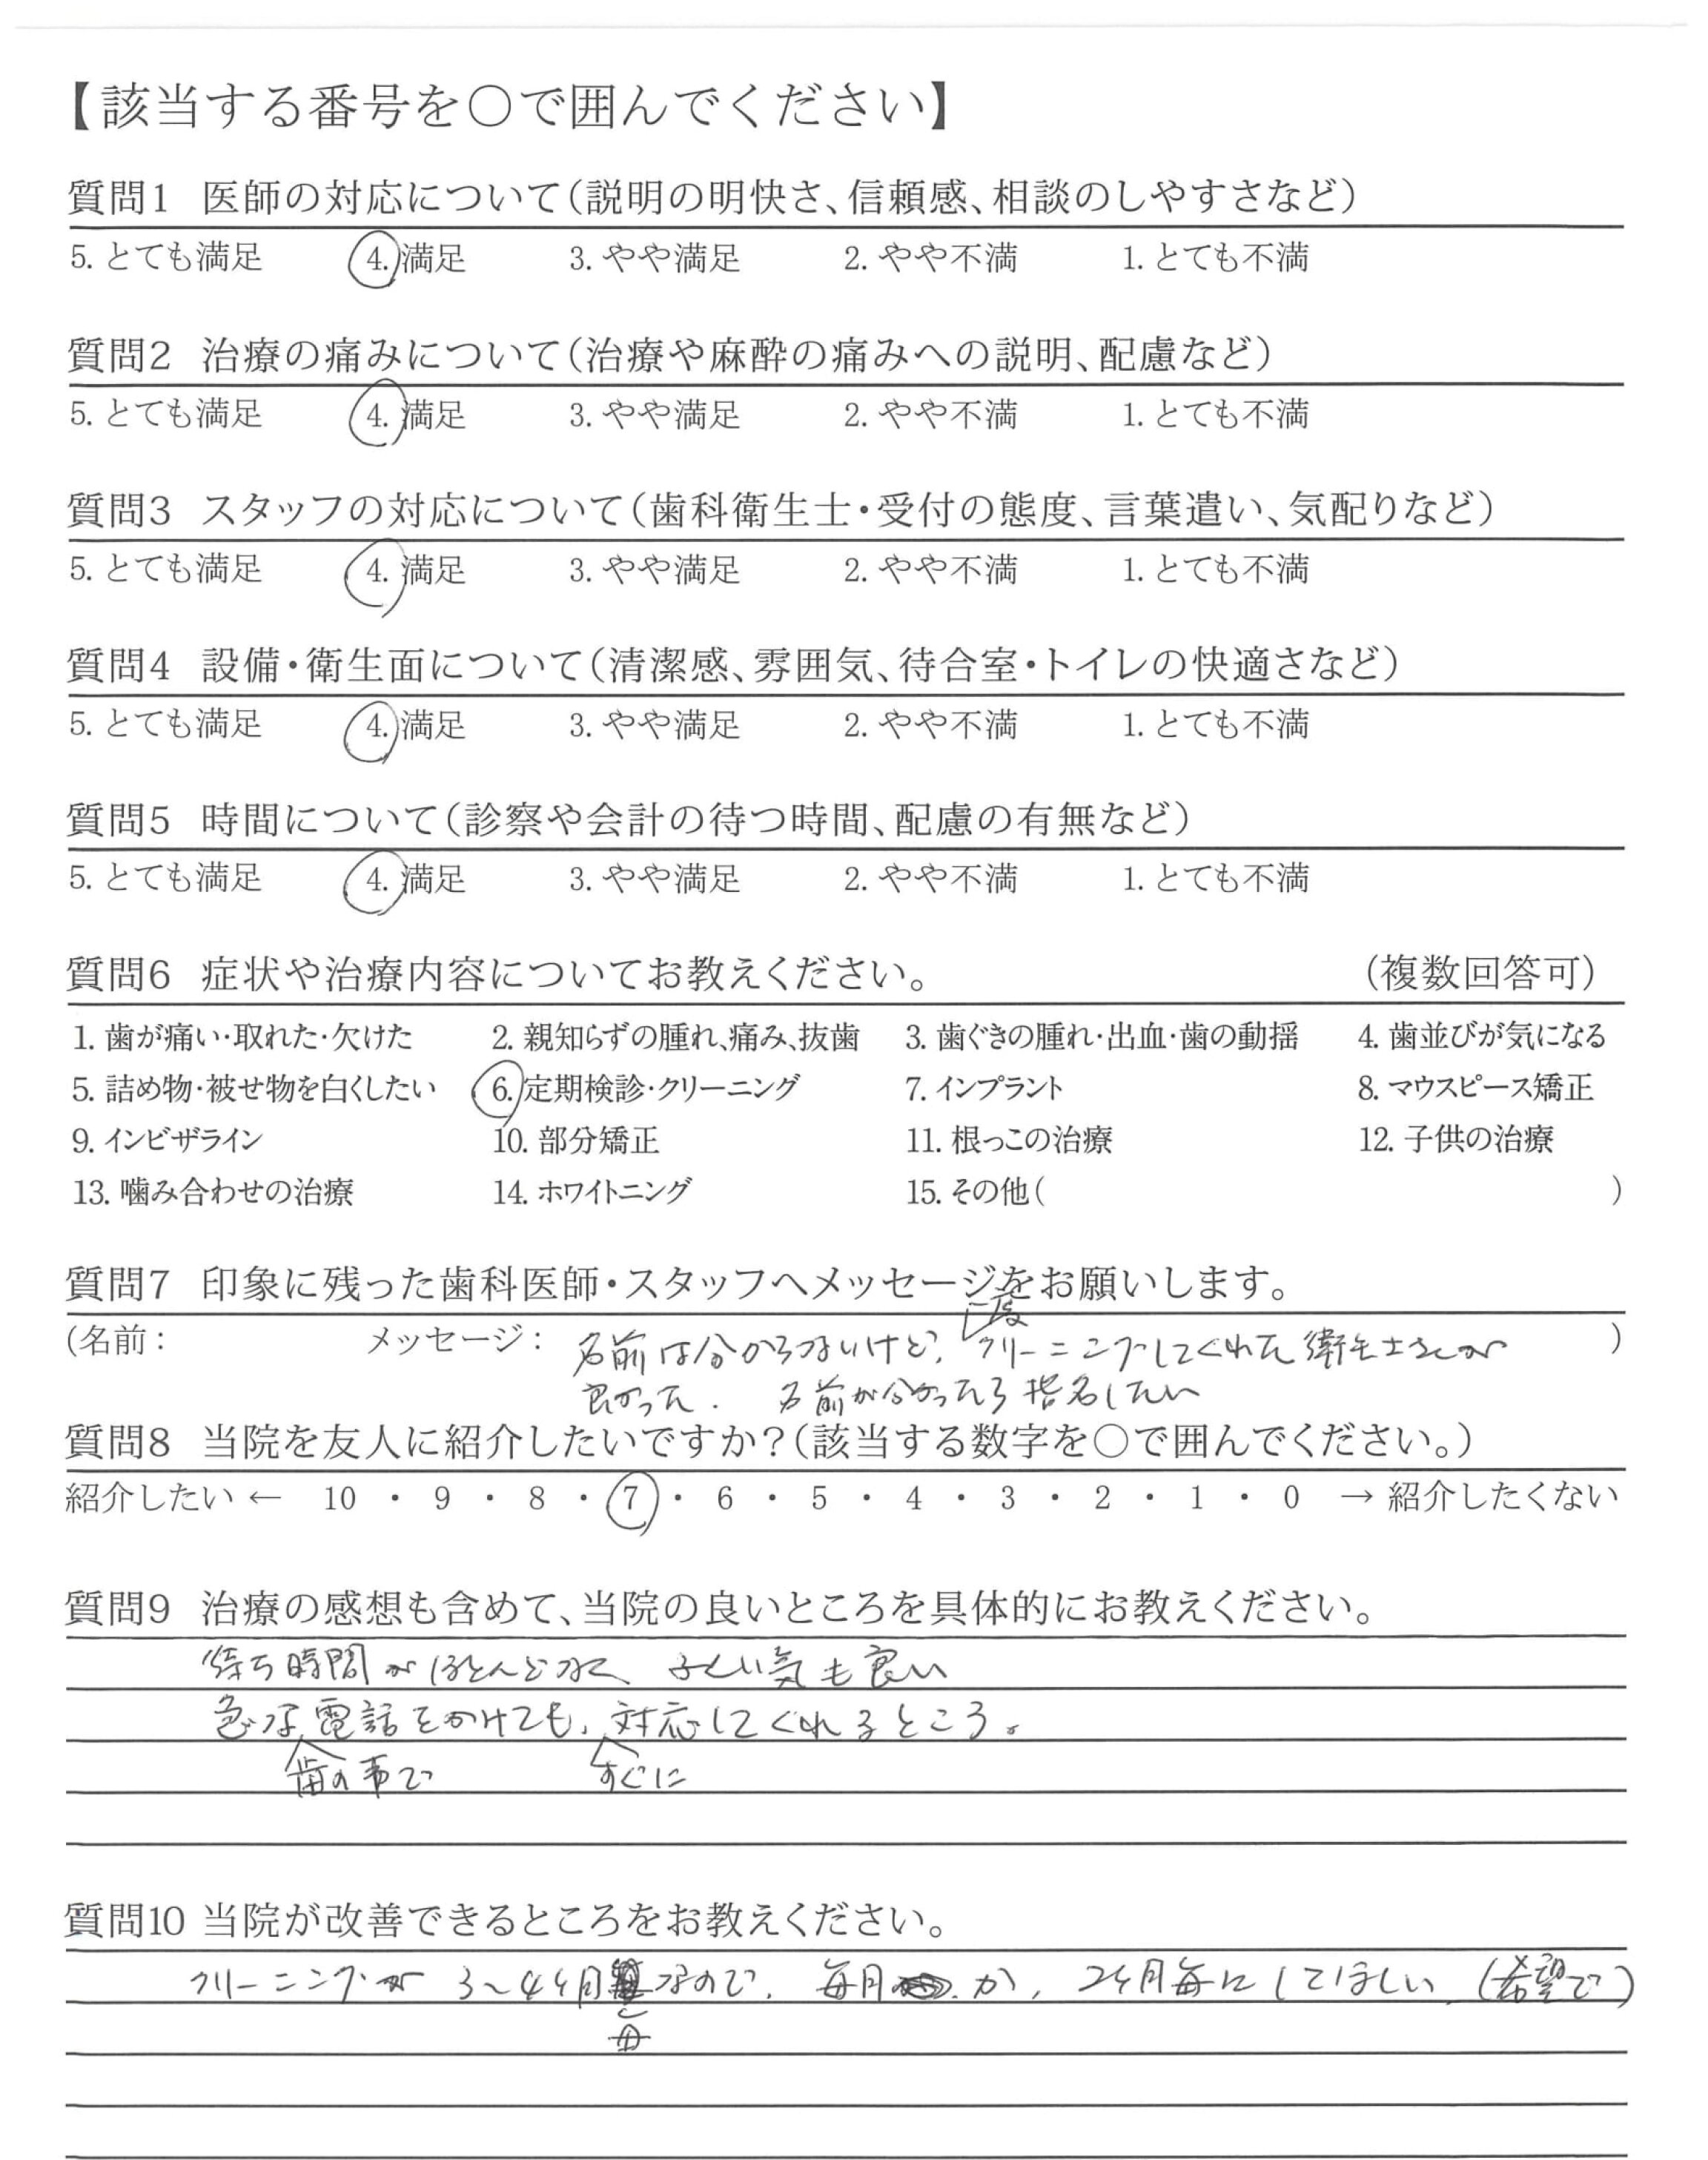 【該当する番号を○で囲んでください】
質問1 医師の対応について(説明の明快さ、信頼感、相談のしやすさなど)
5. とても満足 4. 満足 3. やや満足 2. やや不満 1. とても不満
質問2 治療の痛みについて(治療や麻酔の痛みへの説明、配慮など)
5. とても満足 4. 満足 3. やや満足 2. やや不満 1. とても不満
質問3 スタッフの対応について(歯科衛生士・受付の態度、言葉遣い、気配りなど)
5. とても満足 4. 満足 3. やや満足 2. やや不満 1. とても不満
質問4 設備・衛生面について(清潔感、雰囲気、待合室・トイレの快適さなど)
5. とても満足 4. 満足 3. やや満足 2. やや不満 1. とても不満
質問5 時間について(診察や会計の待つ時間、配慮の有無など)
5. とても満足 4. 満足 3. やや満足 2. やや不満 1. とても不満
質問6 症状や治療内容についてお教えください。 (複数回答可)
1. 歯が痛い・取れた・欠けた 2. 親知らずの腫れ、痛み、抜歯 3. 歯ぐきの腫れ・出血・歯の動揺 4. 歯並びが気になる
5. 詰め物・被せ物を白くしたい 6. 定期検診・クリーニング 7. インプラント 8. マウスピース矯正
9. インビザライン 10. 部分矯正 11. 根っこの治療 12. 子供の治療
13. 噛み合わせの治療 14. ホワイトニング 15. その他( )
質問7 印象に残った歯科医師・スタッフへメッセージをお願いします。
一度
(名前: メッセージ: 名前は分からないけど、クリーニングしてくれた衛生士さんが )
良かった. 名前が分かったら指名したい
質問8 当院を友人に紹介したいですか?(該当する数字を○で囲んでください。)
紹介したい ← 10 ・ 9 ・ 8 ・ 7 ・ 6 ・ 5 ・ 4 ・ 3 ・ 2 ・ 1 ・ 0 → 紹介したくない
質問9 治療の感想も含めて、当院の良いところを具体的にお教えください。
待ち時間がほとんどなく ふんい気も良い
急な電話をかけても、対応してくれるところ。
歯の事で すぐに
質問10 当院が改善できるところをお教えください。
クリーニングが 3〜4ヶ月なので、毎月か、2ヶ月毎にしてほしい (希望で)
毎